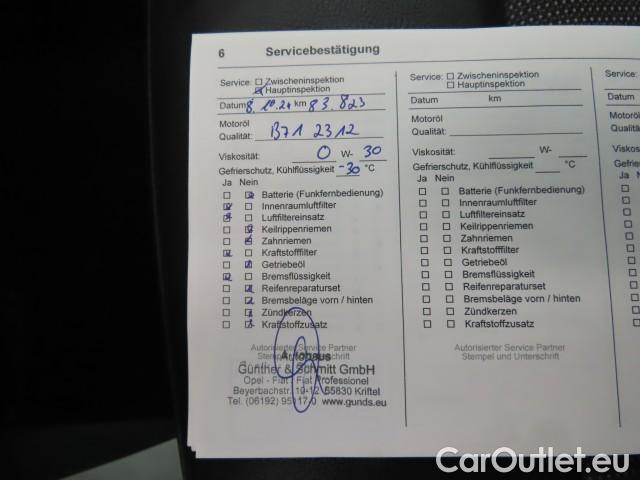 6 Servicebestätigung
Service: Zwischeninspektion
Hauptinspektion
Datum 8.10.24 km 83.823
Motoröl
Qualität: B71 2312
Viskosität: 0 W- 30
Gefrierschutz, Kühlflüssigkeit -30 °C
Ja Nein
Batterie (Funkfernbedienung)
Innenraumluftfilter
Luftfiltereinsatz
Keilrippenriemen
Zahnriemen
Kraftstofffilter
Getriebeöl
Bremsflüssigkeit
Reifenreparaturset
Bremsbeläge vorn / hinten
Zündkerzen
Kraftstoffzusatz
Autorisierter Service Partner
Autohaus
Günther & Schmitt GmbH
Opel - Fiat - Fiat Professional
Beyerbachstr. 10-12 65830 Kriftel
www.gunds.eu
Service: Zwischeninspektion
Hauptinspektion
Datum km
Motoröl
Qualität:
Viskosität: W-
Gefrierschutz, Kühlflüssigkeit °C
Ja Nein
Batterie (Funkfernbedienung)
Innenraumluftfilter
Luftfiltereinsatz
Keilrippenriemen
Zahnriemen
Kraftstofffilter
Getriebeöl
Bremsflüssigkeit
Reifenreparaturset
Bremsbeläge vorn / hinten
Zündkerzen
Kraftstoffzusatz
Autorisierter Service Partner
Stempel und Unterschrift
Service:
Datum
Motoröl
Qualität:
Ja
CarOutlet.eu